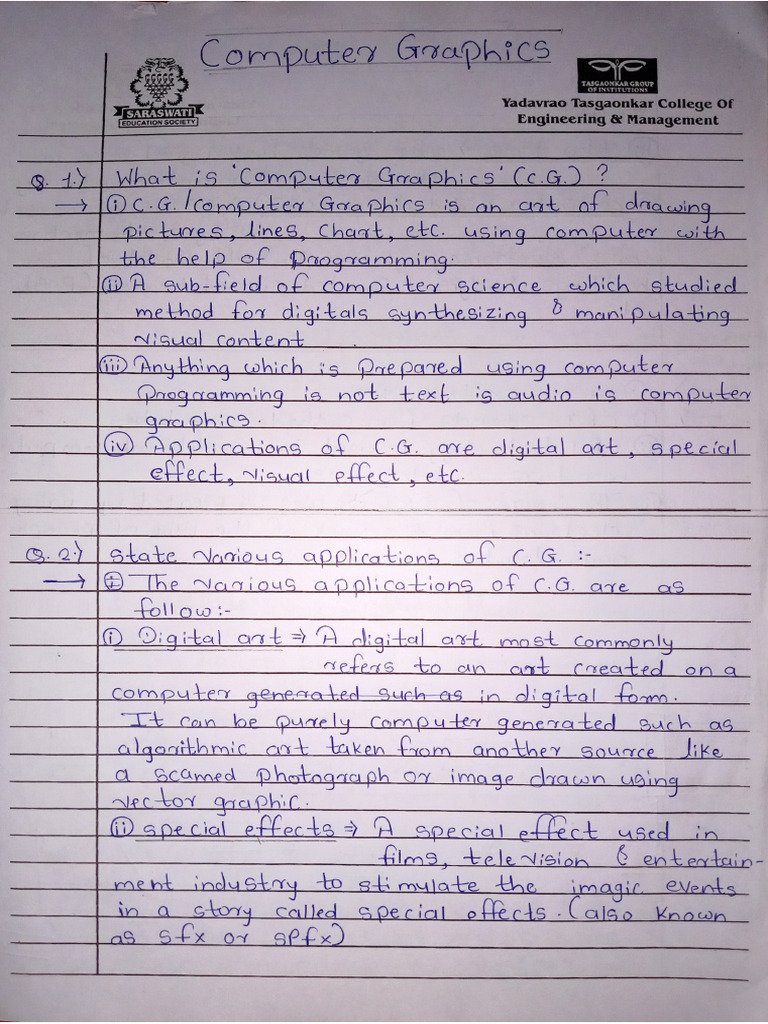 Computer Graphics
SARASWATI
EDUCATION SOCIETY
TASGAONKAR GROUP
OF INSTITUTIONS
Yadavrao Tasgaonkar College Of
Engineering & Management
Q. 1.) What is 'Computer Graphics' (C.G.) ?
→ (i) C.G./Computer Graphics is an art of drawing
pictures, lines, chart, etc. using computer with
the help of programming.
(ii) A sub-field of computer science which studied
method for digitals synthesizing & manipulating
visual content
(iii) Anything which is prepared using computer
programming is not text is audio is computer
graphics.
(iv) Applications of C.G. are digital art, special
effect, visual effect, etc.
Q. 2.) State various applications of C.G. :-
→ The various applications of C.G. are as
follow:-
(i) Digital art ⇒ A digital art most commonly
refers to an art created on a
computer generated such as in digital form.
It can be purely computer generated such as
algorithmic art taken from another source like
a scamed photograph or image drawn using
vector graphic.
(ii) special effects ⇒ A special effect used in
films, television & entertain-
ment industry to stimulate the imagic events
in a story called special effects. (also known
as sfx or spfx)